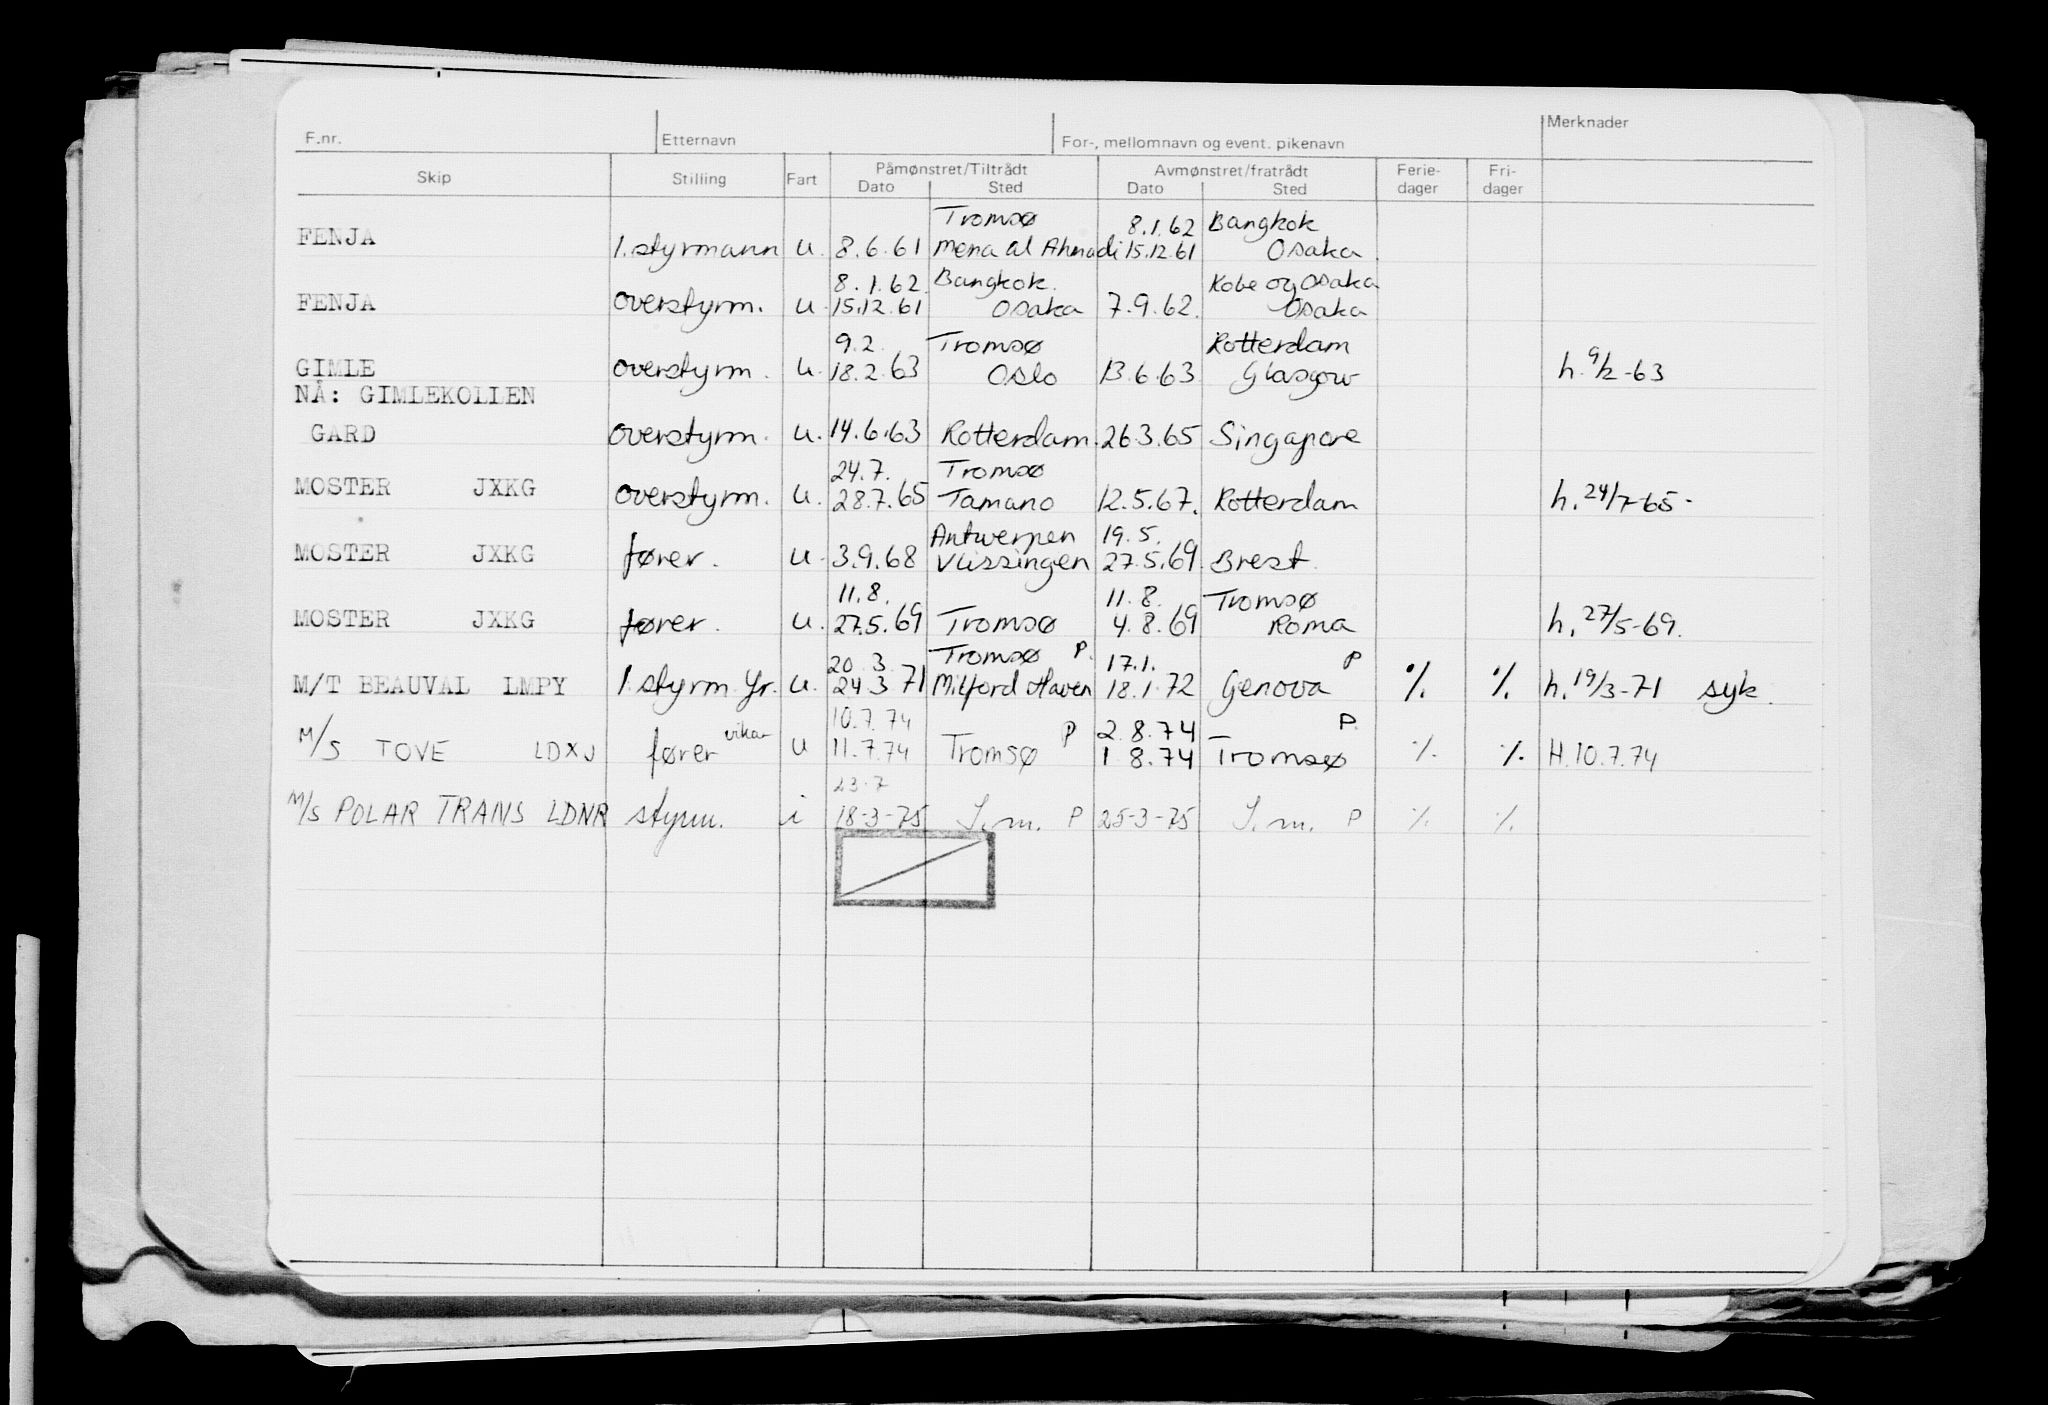 F.nr. Etternavn For-, mellomnavn og event. pikenavn Merknader
Skip Stilling Fart Påmønstret/Tiltrådt Avmønstret/fratrådt Ferie- Fri-
Dato Sted Dato Sted dager dager
Tromsø 8.1.62 Bangkok
FENJA 1.styrmann u. 8.6.61 Mena al Ahmadi 15.12.61 Osaka
8.1.62. Bangkok. Kobe og Osaka
FENJA overstyrm. u. 15.12.61 Osaka 7.9.62. Osaka
9.2. Tromsø Rotterdam
GIMLE overstyrm. u. 18.2.63 Oslo 13.6.63 Glasgow h. 9/2-63
NÅ: GIMLEKOLLEN
GARD overstyrm. u. 14.6.63 Rotterdam. 26.3.65 Singapore
24.7. Tromsø
MOSTER JXKG overstyrm. u. 28.7.65 Tamano 12.5.67. Rotterdam h. 24/7-65-
Antwerpen 19.5.
MOSTER JXKG fører. u. 3.9.68 Vlissingen 27.5.69 Brest.
11.8. 11.8. Tromsø
MOSTER JXKG fører. u. 27.5.69 Tromsø 4.8.69 Roma h. 27/5-69.
20.3. Tromsø P. 17.1. P
M/T BEAUVAL LMPY 1.styrm. Yr. u. 24.3.71 Milford Haven 18.1.72 Genova % % h. 19/3-71 syk.
10.7.74 P 2.8.74 — P.
M/S TOVE LDXJ fører vikar u 11.7.74 Tromsø 1.8.74 Tromsø % % H.10.7.74
23.7
M/S POLAR TRANS LDNR styrm. i 18-3-75 S.m. P 25-3-75 S.m. P % %